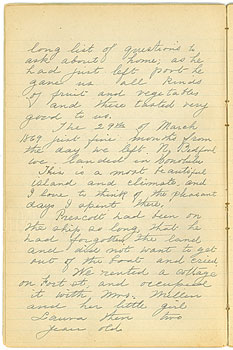 long list of questions to
ask about home; as he
had just left port he
gave us all kinds
of fruit and vegetables
and these tasted very
good to us.
The 29th of March
1869 just five months from
the day we left N. Bedford
we landed in Honolulu
This is a most beautiful
island and climate, and
I love to think of the pleasant
days I spent there.
Prescott had been on
the ship so long, that he
had forgotten the land
and did not want to get
out of the boat and cried.
We rented a cottage
on Fort st, and occupied
it with Mrs.
and her little girl
Laura then two
years old